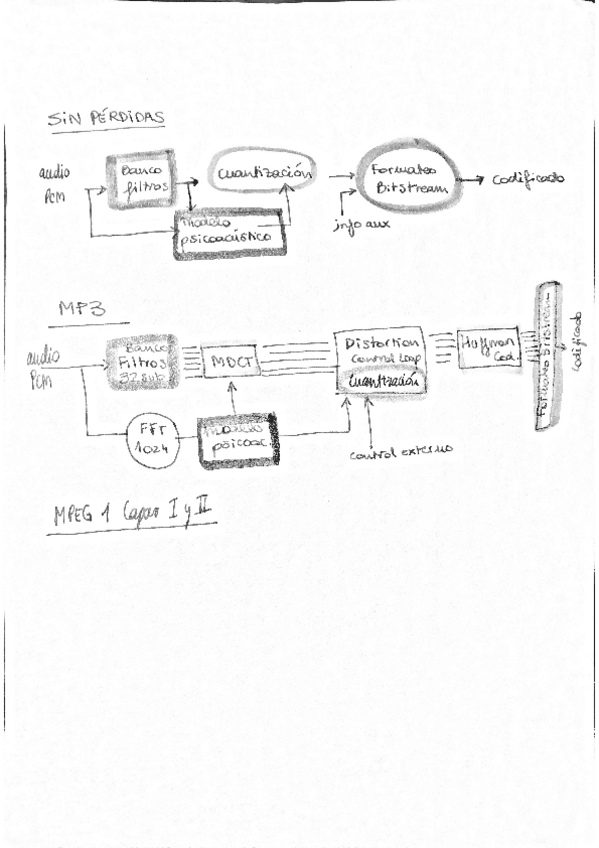 SIN PÉRDIDAS
audio
Pcm
Banco
filtros
cuantización
Formateo
Bitstream
codificado
modelo
psicoacústico
info aux
MP3
audio
Pcm
Banco
Filtros
32 sub
MDCT
Distortion
Control Loop
Cuantización
Huffman
Cod.
Formateo Bitstream
codificado
FFT
1024
modelo
psicoac.
control externo
MPEG 1 Capas I y II